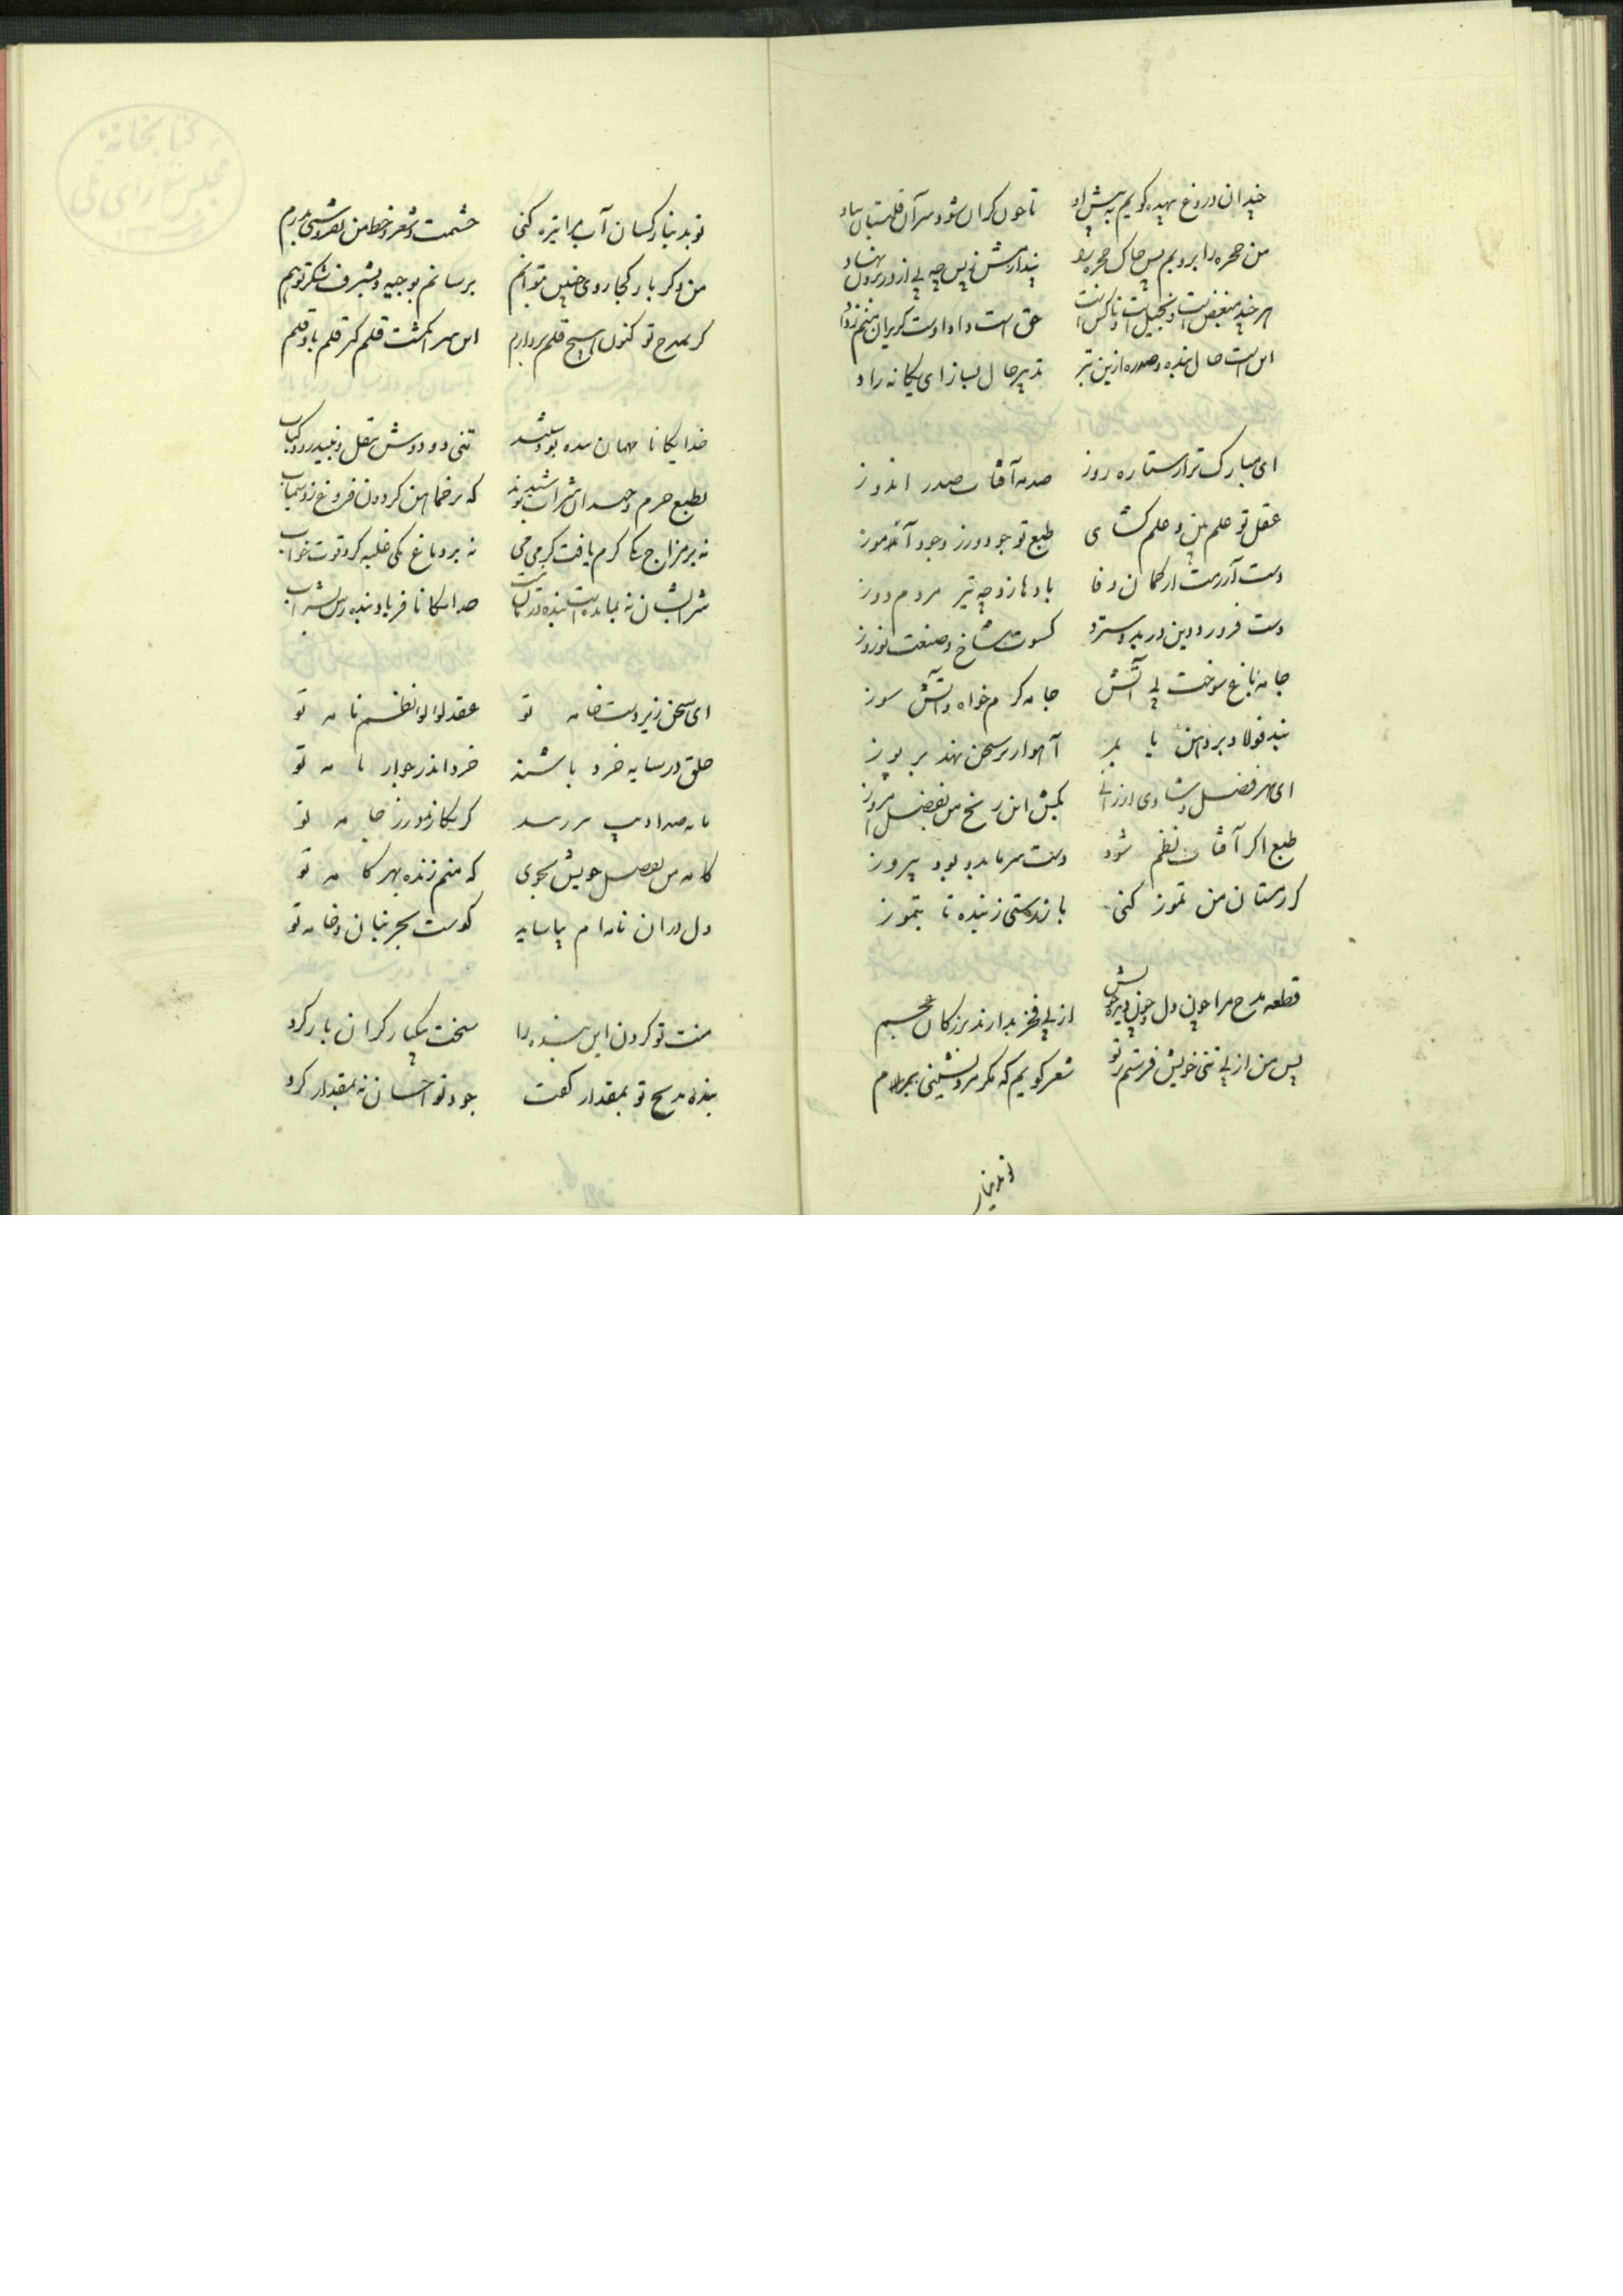 چندان دروغ بیهده گویم به پیش او تا خون گران شود سر آن قلتبان
من حجره را بروبم پس خاک حجره رو پندارمش نی پس چه پی از در برون نهاد
هر چند مبغض است و بخیل است و ناکس است حق است
این است حال بنده و صدره ازین بتر تدبیر حال بساز ای یگانه راد
ای مبارک تر از ستاره روز صدمه آفتاب صدر اندوز
عقل تو علم بین و علم گشای طبع تو جود ورز و جود آموز
دست آزرمت از کمان وفا بادها زد چه تیر مردم دوز
دست فروردین درید و سترد کسوت شاخ و صنعت نوروز
جامه باغ سوخت بی آتش جامه گرم خواه و آتش سوز
بند فولاد بر دهن یابد آهو ار بر سخن نهد بر پوز
ای هنر فضل و شادی ارزانی بکش این رنج من بفضل امروز
طبع اگر آفتاب نظم شود دست سرما برو بود پیروز
گر زمستان من تموز کنی باز رستی ز بنده تا بتموز
قطعه مدح مرا چون دل و چون دیده خویش از پی فخر بدارند بزرگان عجم
پس من از پی نی خویش فرستم بر تو شعر گویم که مگر مرد نشینی بمرام
تو بدینار
تو بدینار کسان آب مرا تیره کنی حشمت و شعر و خط من بفروشی بدرم
من دگر بار کجا روی چنین بتوانم برسانم بوجیه و بشرف شکر تو هم
گر بمدح تو کنون هیچ قلم بردارم این سر انگشت قلم گر قلم باد قلم
خدایگانا مهمان بنده بودستند تنی دو دوش بنقل و نبید و رود و کباب
بطبع خرم و خندان شراب نوشیدند که بر خماهن گردون فروغ زد سیماب
نه بر مزاج یکی گرم یافت گرمی می نه بر دماغ یکی غلبه کرد قوت خواب
شرابشان نه بمانده است بنده در مانده است خدایگانا فریاد بنده رس بشراب
ای سخن زیر دست خامه تو عقد لؤلؤ نظم نامه تو
خلق در سایه خرد باشند خرد اندر جوار نامه تو
گر بکازر مورز جامه تو
کامه من بفضل خویش بجوی که منم زنده بهر کامه تو
دل دران نامه ام بیاساید کوست بحر بنان و خامه تو
منت تو گردن این بنده را سخت بیکبار گران بار کرد
بنده مدیح تو بمقدار گفت جود تو احسان نه بمقدار کرد
کتابخانه
مجلس شورای ملی